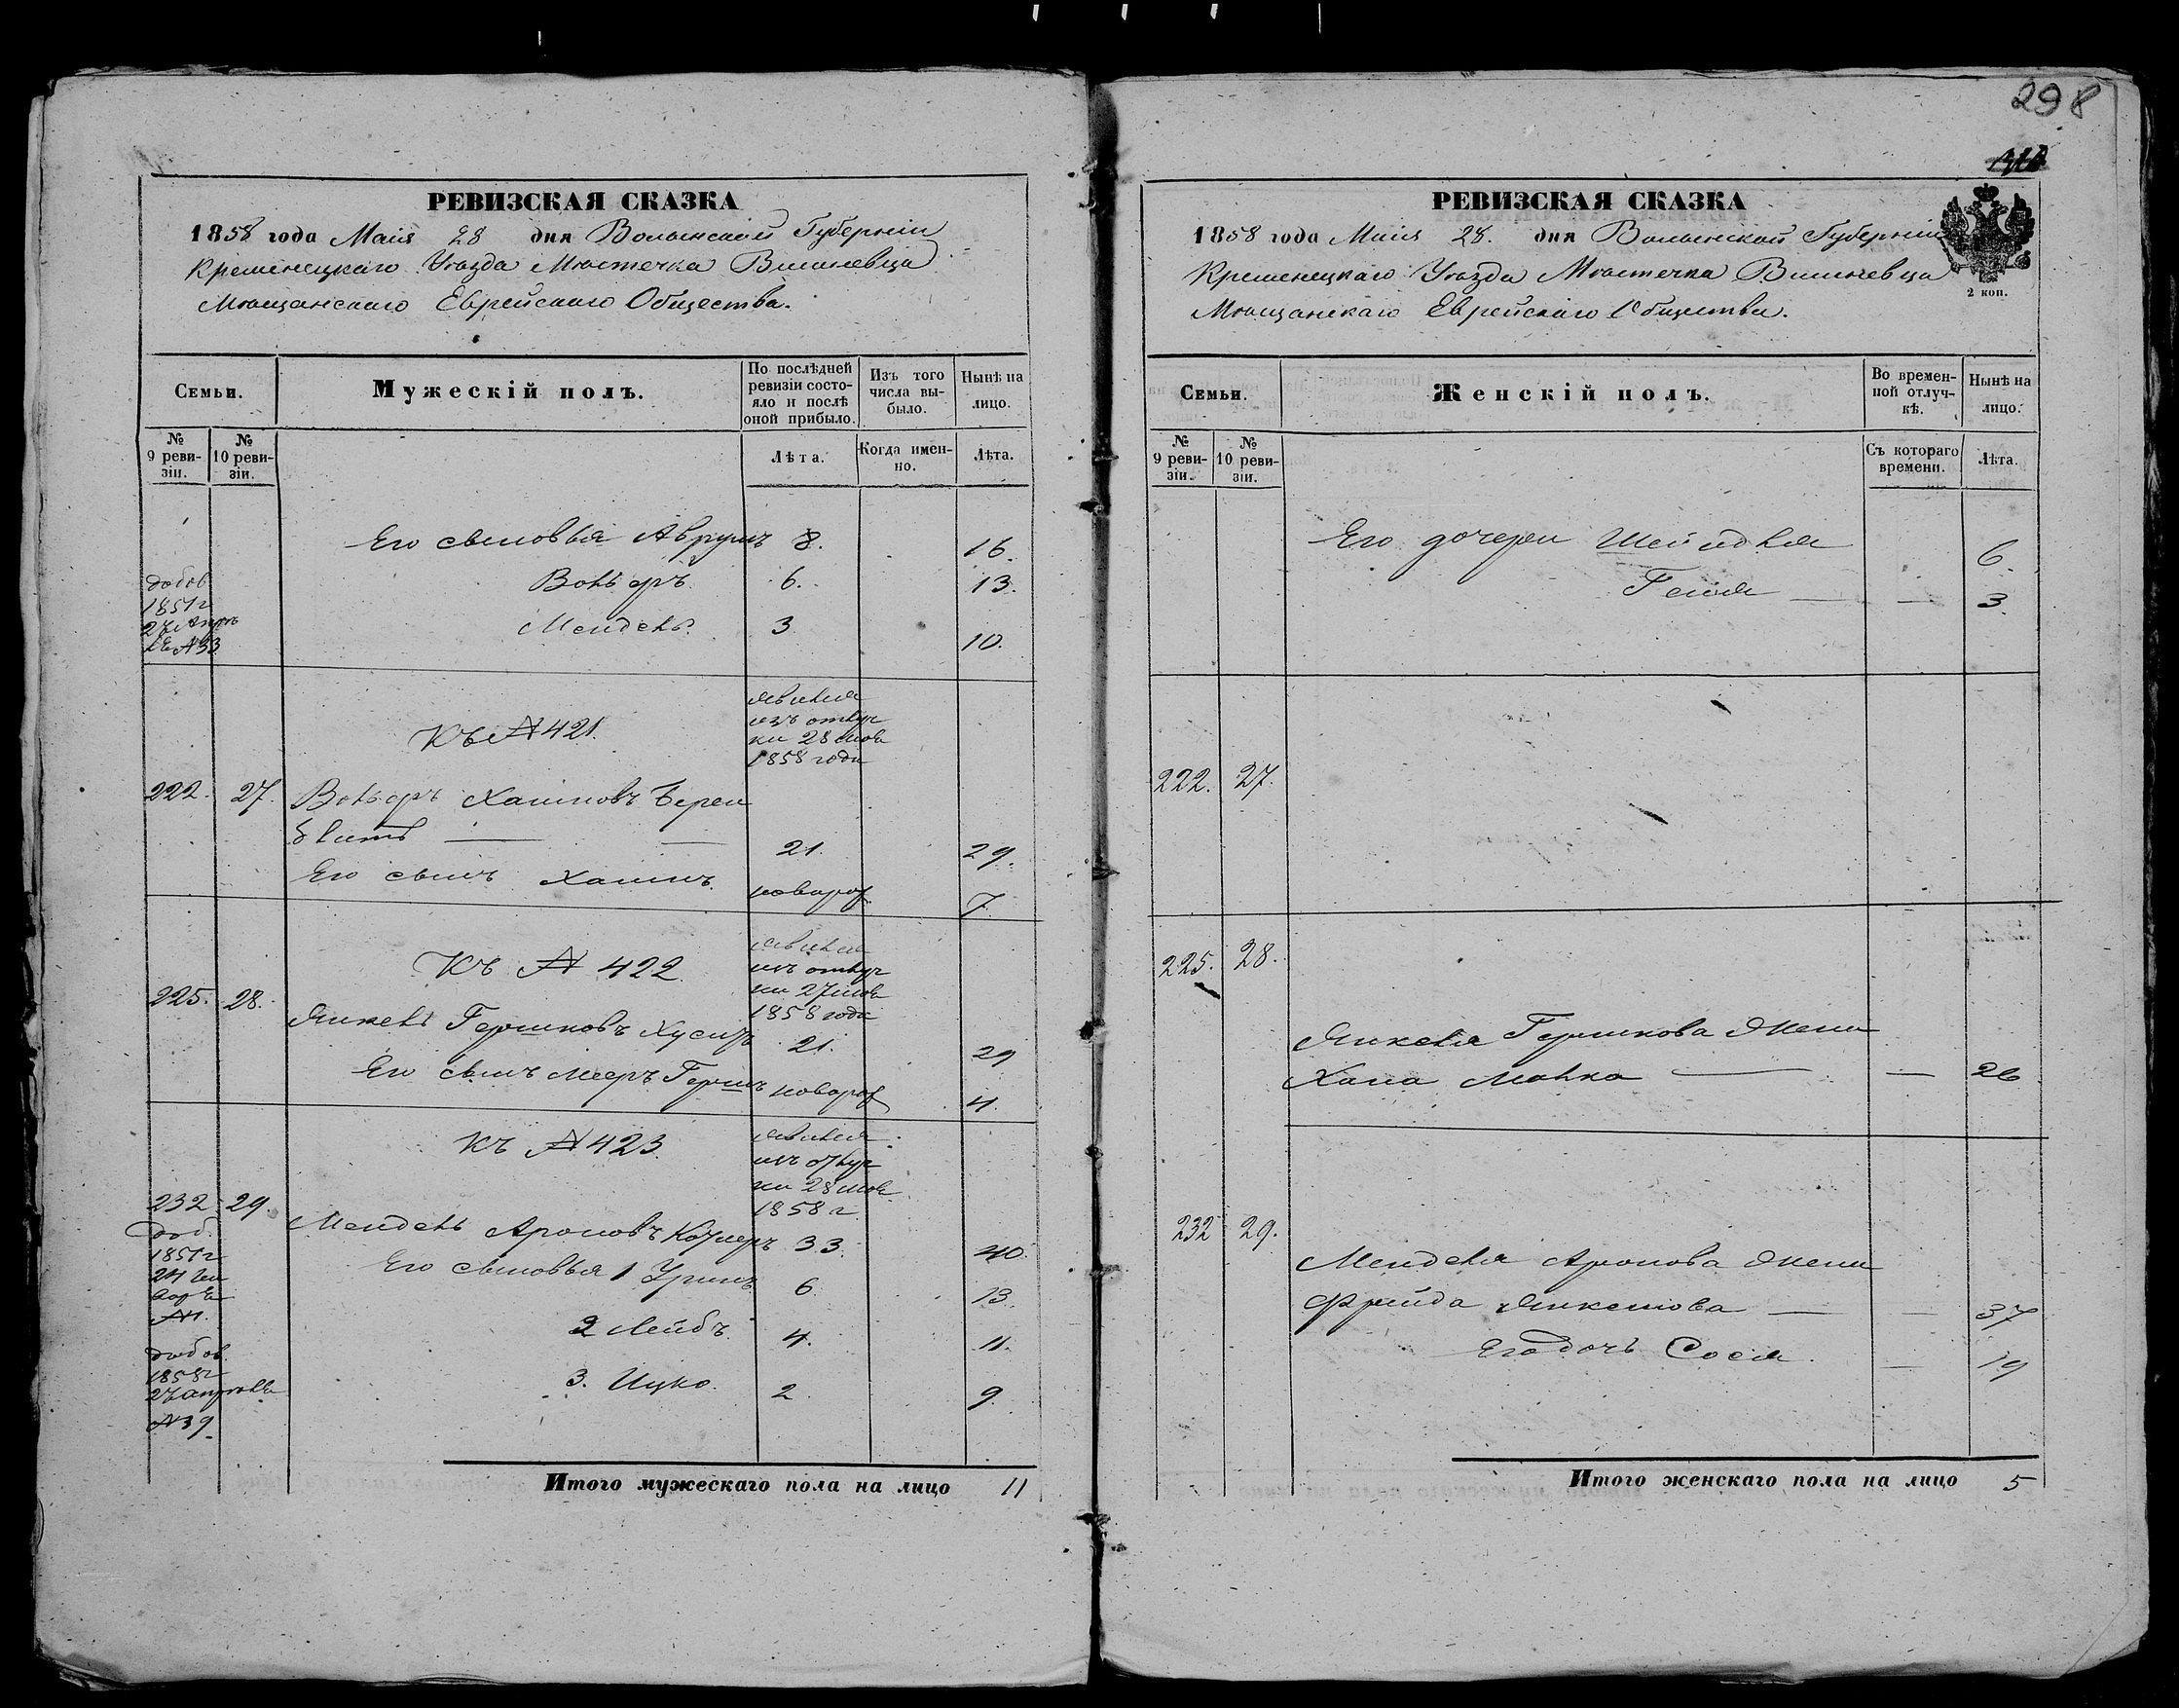 298
РЕВИЗСКАЯ СКАЗКА
1858 года Маия 28 дня Волынской Губерніи
Кременецкаго Уѣзда Мѣстечка Вишневца
Мѣщанскаго Еврейскаго Общества.
Семьи.
Мужескій полъ.
По послѣдней ревизіи состояло и послѣ оной прибыло.
Изъ того числа выбыло.
Нынѣ на лицо.
№ 9 ревизіи.
№ 10 ревизіи.
Лѣта.
Когда именно.
Лѣта.
Его сыновья Аврумъ 8. 16.
Вольфъ 6. 13.
Мендель 3 10.
добов
1851г
27 Апрѣ
ля №33
Къ №421.
явился
изъ отлуч
ки 28 мая
1858 года
222. 27. Вольфъ Хаимовъ Берен
блитъ 21. 29.
Его сынъ Хаимъ новорож 7
Къ № 422
явился
изъ отлуч
ки 27 мая
1858 года
225. 28. Янкель Гершковъ 21. 29
Его сынъ Мееръ Гершъ новорож 4.
Къ №423
явился
изъ отлуч
ки 28 мая
1858 г
232 29. Мендель Ароновъ 33. 40.
Его сыновья 1 6 13.
2 Лейбъ 4. 11.
3. Ицко. 2 9
доб.
1851г
24 Ген
варя
№1.
добов.
1858г
27 апрѣля
№39
Итого мужескаго пола на лицо 11
РЕВИЗСКАЯ СКАЗКА
1858 года Маия 28. дня Волынской Губерніи
Кременецкаго Уѣзда Мѣстечка Вишневца
Мѣщанскаго Еврейскаго Общества.
2 коп.
Семьи.
Женскій полъ.
Во временной отлучкѣ.
Нынѣ на лицо.
№ 9 ревизіи.
№ 10 ревизіи.
Съ котораго времени.
Лѣта.
Его дочери Шейндля 6.
Геня 3.
222. 27.
225. 28.
Янкеля Гершкова Жена
Хана Малка 26
232 29.
Менделя Аронова Жена
Фрейда 37
Его дочь Сося 19
Итого женскаго пола на лицо 5